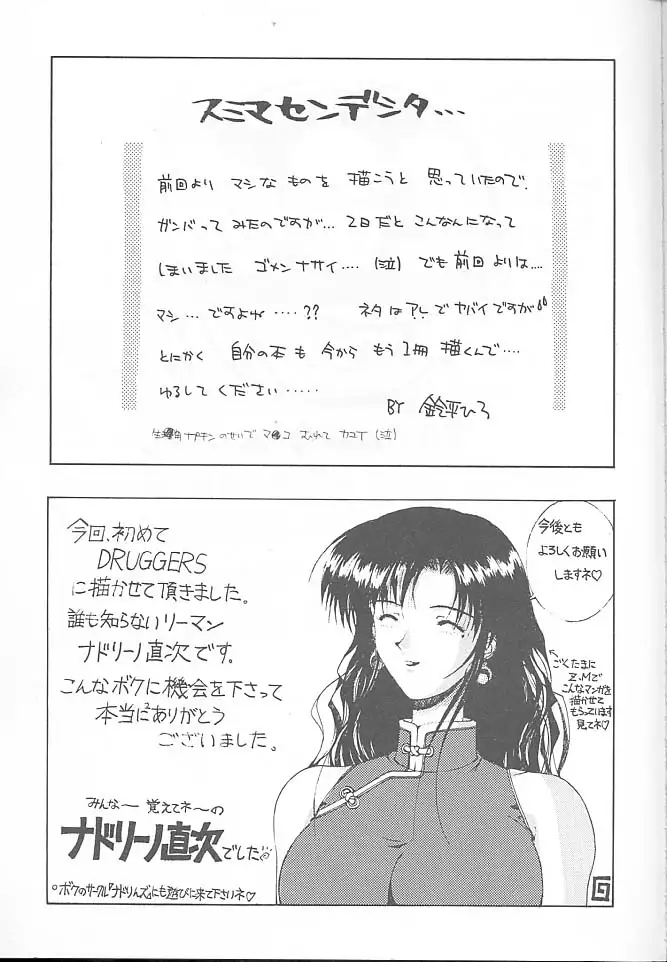 スミマセンデシタ...
前回より マシな ものを 描こうと 思っていたので、
ガンバって みたのですが... 2日だと こんなんになって
しまいました ゴメンナサイ.... (泣) でも前回 よりは....
マシ... ですよね .....?? ネタはアレでヤバイですが
とにかく 自分の本も 今から もう1冊 描くんで....
ゆるして ください .....
BY 鈴平ひろ
ナプキンのせいで マ●コ むれて カユイ (泣)
今回、初めて
DRUGGERS
に描かせて頂きました。
誰も知らないリーマン
ナドリーノ直次です。
こんなボクに機会を下さって
本当にありがとう
ございました。
みんなー 覚えてネ〜の
ナドリーノ直次でした
○ボクのサークル『ナドりんズ』にも遊びに来て下さいネ♡
今後とも
よろしくお願い
しますネ♡
←ごくたまに
Z.Mで
こんなマンガを
描かせて
もらっています
見てネ♡